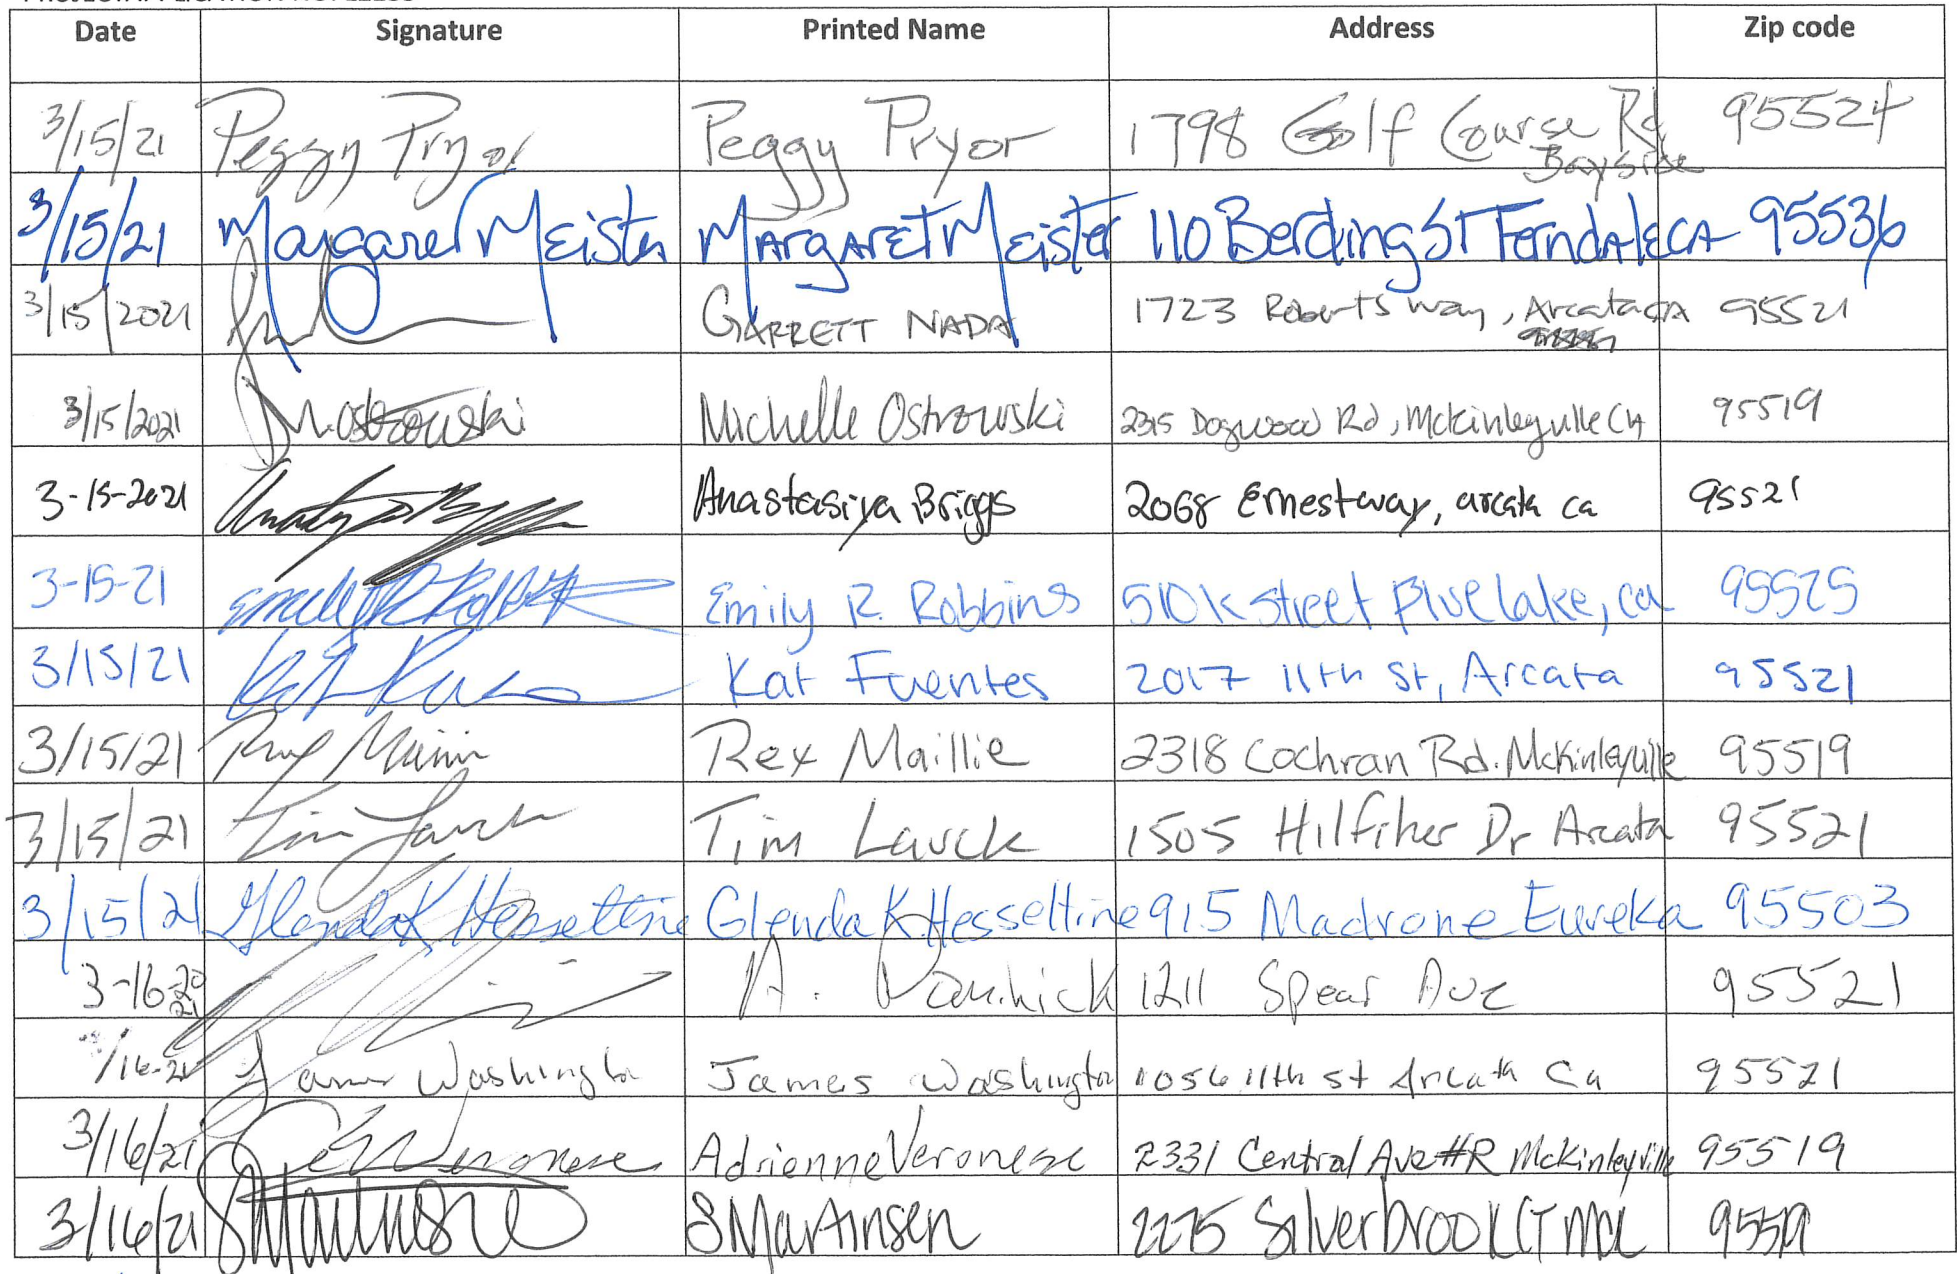 Date Signature Printed Name Address Zip code
3/15/21 Peggy Pryor Peggy Pryor 1798 Golf Course Rd 95524
Bayside
3/15/21 Margaret Meister Margaret Meister 110 Berding St Ferndale CA 95536
3/15/2021 GARRETT NADA 1723 Roberts Way, Arcata CA 95521
3/15/2021 M. Ostrowski Michelle Ostrowski 2315 Dogwood Rd, McKinleyville CA 95519
3-15-2021 Anastasiya Briggs 2068 Ernest way, arcata ca 95521
3-15-21 Emily R Robbins Emily R. Robbins 510 K Street Blue Lake, ca 95525
3/15/21 Kat Fuentes 2017 11th St, Arcata 95521
3/15/21 Rex Maillie 2318 Cochran Rd. McKinleyville 95519
3/15/21 Tim Lauck Tim Lauck 1505 Hilfiker Dr Arcata 95521
3/15/21 Glenda K Hesseltine Glenda K Hesseltine 915 Madrone Eureka 95503
3-16-20 A. 1211 Spear Ave 95521
21
/16-21 James Washington James Washington 1056 11th st Arcata Ca 95521
3/16/21 Veronese Adrienne Veronese 2331 Central Ave #R McKinleyville 95519
3/16/21 S Martinsen S Martinsen 2275 Silverbrook CT McK 95519